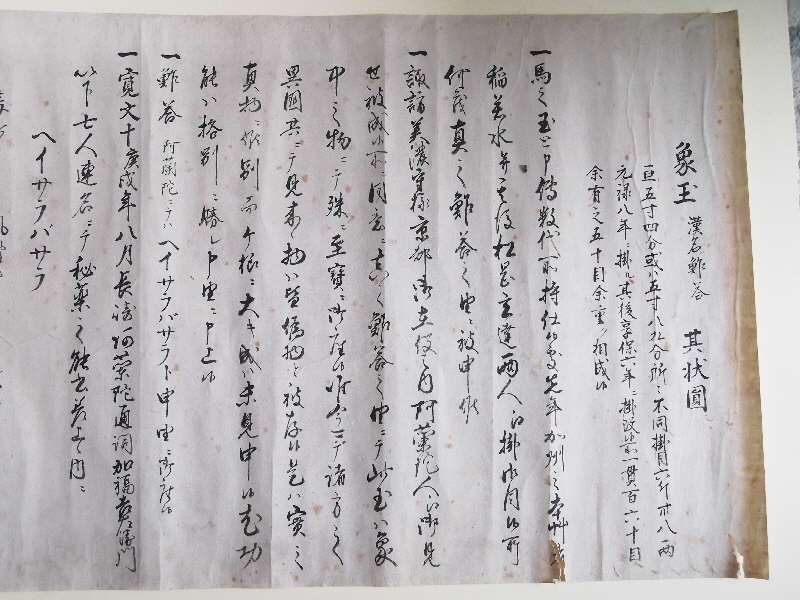 象玉 漢名鮓荅 其状圓
亘五寸四分或ハ五寸八九分所ニ不同掛目六斤廿八両
元禄八年ニ掛ル其後享保六年ニ掛改候所一貫百六十目
余有之五十目余重ク相成候
一馬之玉と申傳数代所持仕候処先年加州之本草者
稲若水并其後松岡玄達両人江掛御目候所
何茂真之鮓荅之由ニ被申候
一諏訪美濃守様京都御在役之内阿蘭陀人江御見
せ被成候所ニ同意ニ而鮓荅之由ニテ此玉ハ象
中之物ニテ殊ニ至寶ニ御座候所今ニテ諸方之
異國共ニテ見来ル物ハ皆偽物と被存候是ハ實之
真物ニ候別而ケ様ニ大キ成ハ未見申候尤功
能ハ格別ニ勝レ申由ニ申上候
一鮓荅 阿蘭陀ニテハ ヘイサラバサラト申由ニ御座候
一寛文十庚戌年八月長崎阿蘭陀通詞加福吉左衛門
以下七人連名ニテ秘薬之能書差上候内ニ
ヘイサラバサラ